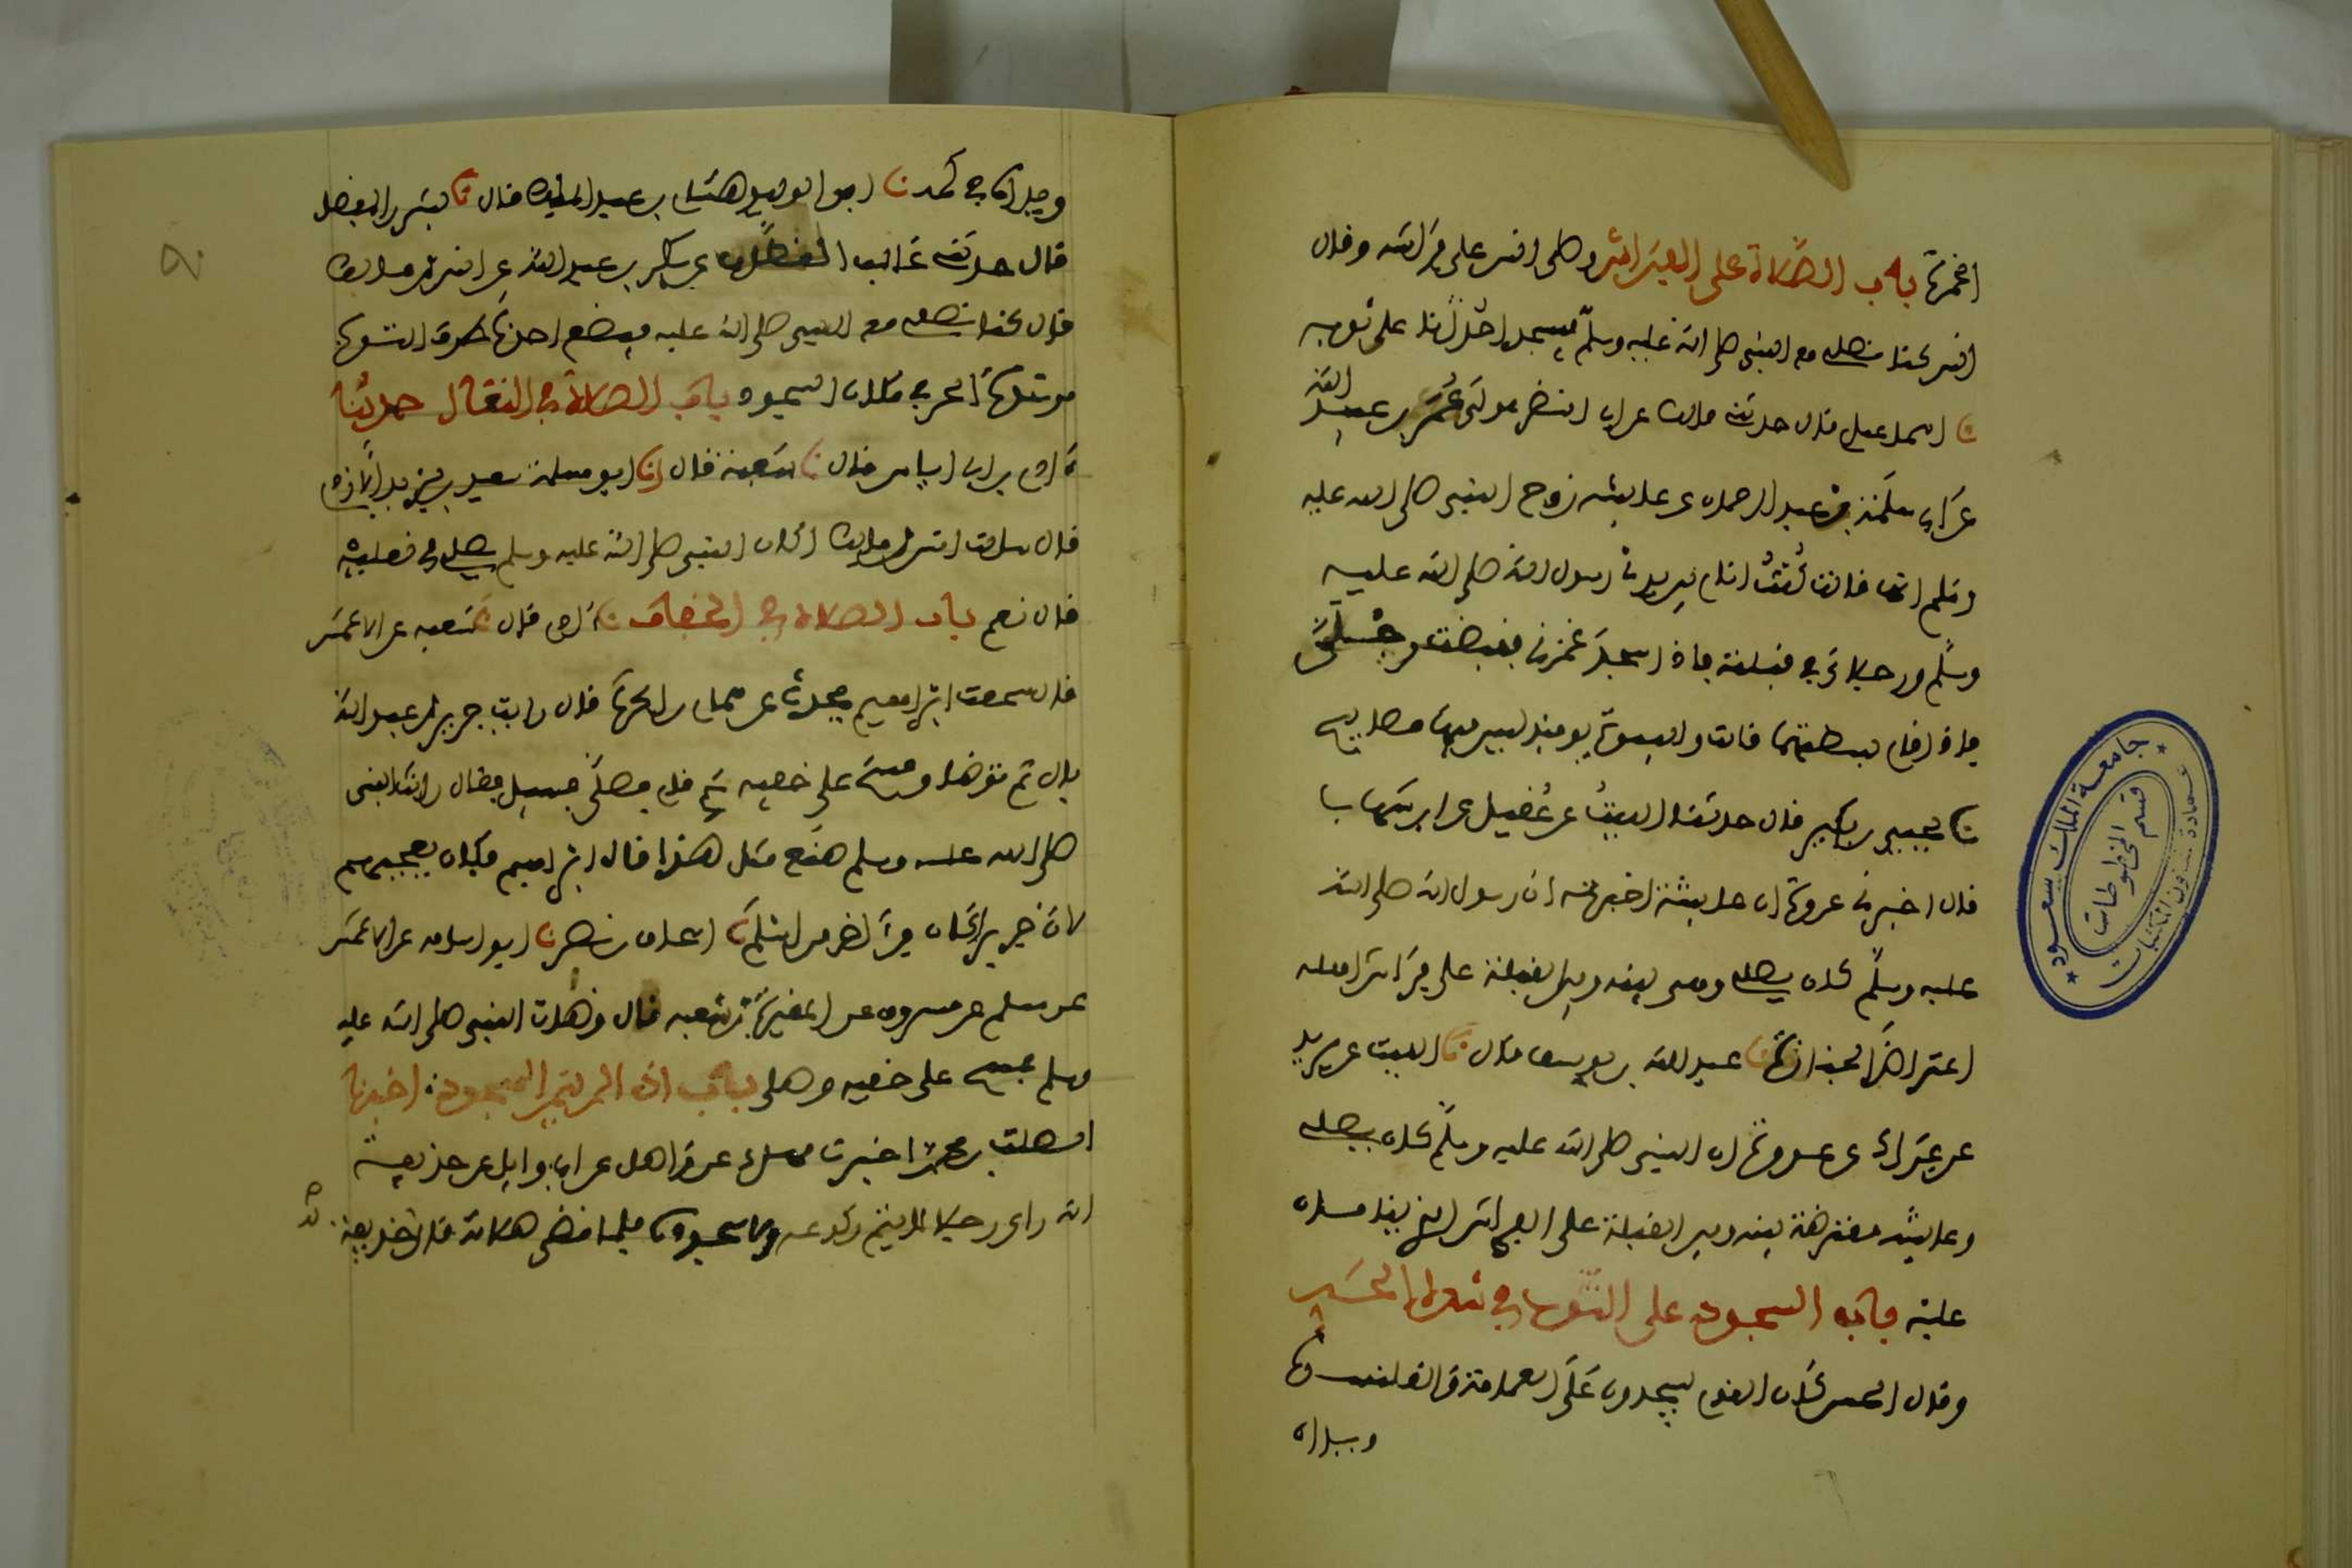 الخمرة باب الصلاة على الفراش وصلى انس على فراشه وقال
انس كنا نصلي مع النبي صلى الله عليه وسلم فيسجد احدنا على ثوبه
نا اسماعيل قال حدثني مالك عن ابي النضر مولى عمر بن عبيد الله
عن ابي سلمة بن عبد الرحمان عن عايشة زوج النبي صلى الله عليه
وسلم انها قالت كنت انام بين يدي رسول الله صلى الله عليه
وسلم ورجلاي في قبلته فاذا سجد غمزني فقبضت رجلي
فاذا قام بسطتهما قالت والبيوت يوميذ ليس فيها مصابيح
نا يحيى بن بكير قال حدثنا الليث عن عقيل عن ابن شهاب
قال اخبرني عروة ان عايشة اخبرته ان رسول الله صلى الله
عليه وسلم كان يصلي وهي بينه وبين القبلة على فراش اهله
اعتراض الجنازة نا عبد الله بن يوسف قال نا الليث عن يزيد
عن عراك عن عروة ان النبي صلى الله عليه وسلم كان يصلي
وعايشة معترضة بينه وبين القبلة على الفراش الذي ينامان
عليه باب السجود على الثوب في شدة الحر
وقال الحسن كان القوم يسجدون على العمامة والقلنسوة
ويداه
ويداه في كمه نا ابو الوليد هشام بن عبد الملك قال نا بشر بن المفضل
قال حدثني غالب القطان عن بكر بن عبد الله عن انس بن مالك
قال كنا نصلي مع النبي صلى الله عليه فيضع احدنا طرف الثوب
من شدة الحر في مكان السجود باب الصلاة في النعال حدثنا
ءادم بن ابي اياس قال نا شعبة قال انا ابو مسلمة سعيد بن يزيد الازدي
قال سالت انس بن مالك اكان النبي صلى الله عليه وسلم يصلي في نعليه
قال نعم باب الصلاة في الخفاف نا ءادم قال نا شعبة عن الاعمش
قال سمعت ابراهيم يحدث عن همام بن الحرث قال رايت جرير بن عبد الله
بال ثم توضا ومسح على خفيه ثم قام فصلى فسيل فقال رايت النبي
صلى الله عليه وسلم صنع مثل هذا قال ابراهيم فكان يعجبهم
لان جريرا كان من ءاخر من اسلم نا اسحاق بن نصر نا ابو اسامة عن الاعمش
عن مسلم عن مسروق عن المغيرة بن شعبة قال وضات النبي صلى الله عليه
وسلم فمسح على خفيه وصلى باب اذا لم يتم السجود اخبرنا
الصلت بن محمد اخبرنا مهدي عن واصل عن ابي وايل عن حذيفة
انه راى رجلا لا يتم ركوعه ولا سجوده فلما قضى صلاته قال له حذيفة
جامعة الملك سعود
عمادة شؤون المكتبات
قسم المخطوطات